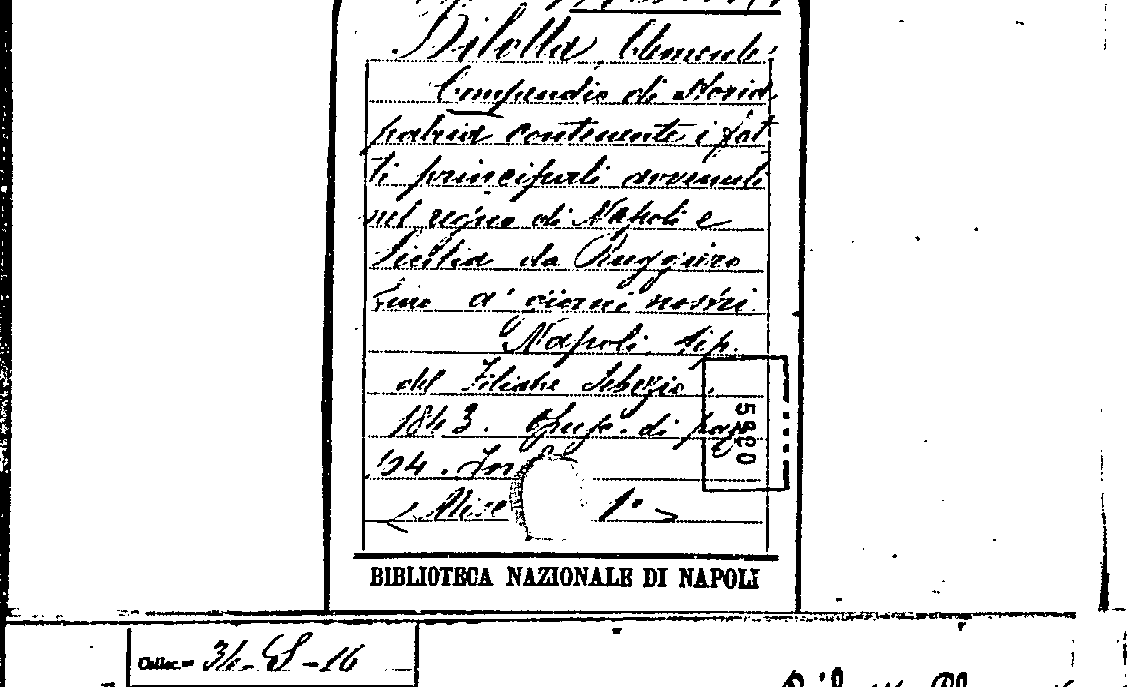 Bilotta, Clemente
Compendio di storia
patria contenente i fat
ti principali avvenuti
nel regno di Napoli e
Sicilia da Ruggiero
fino a' giorni nostri.
Napoli, tip.
del Filiatre Sebezio.
1843. Opusc. di pag.
54. In
(Misc 1°)
5820
BIBLIOTECA NAZIONALE DI NAPOLI
Colloc.= 34-S-16